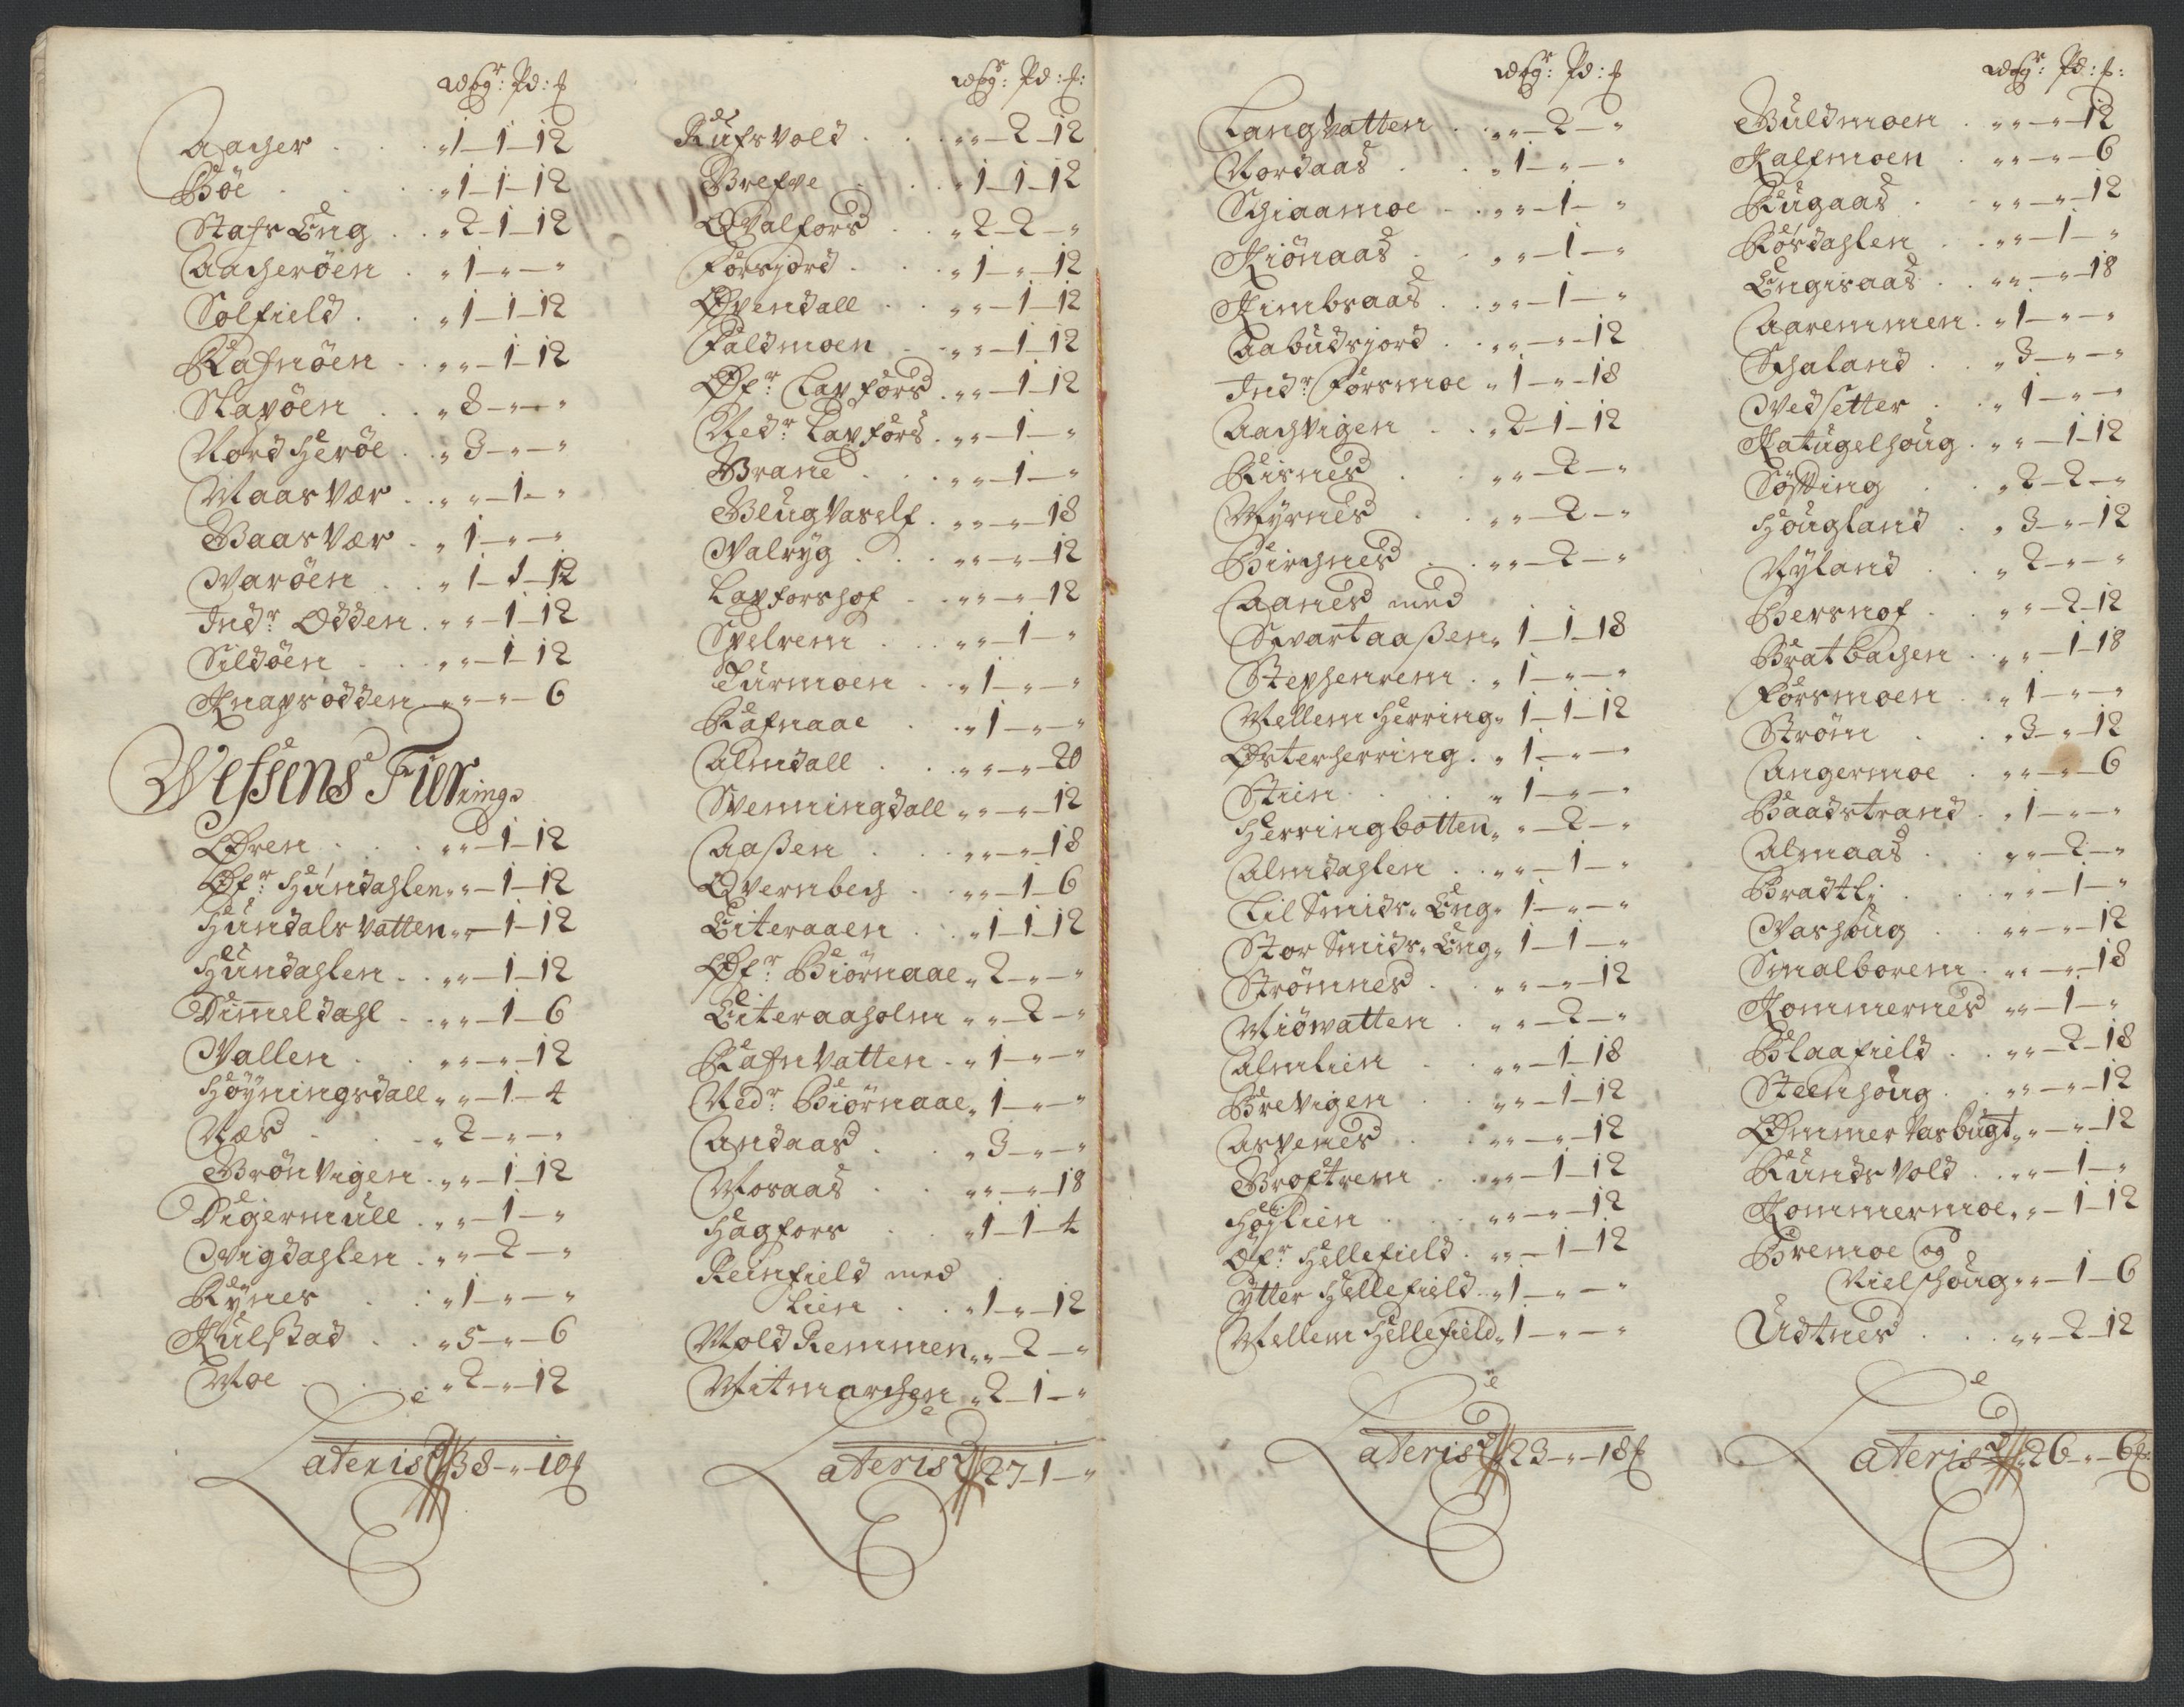 Wogr: Pd: ₰
Aagher . . . „1-1-12
Böe . . . „1-1-12
Stafs Eng . . „2-1-12
Aagheröen . „1-„-„
Solfield . . „1-1-12
Rafnöen . . „„-1-12
Slapöen . . „8-„-„
Nord Heröe . „3-„-„
Maasvær . . „„-1-„
Baasvær . „1-„-„
Waröen . . „1-1-12
Indr Odden . „„-1-12
Sildöen . . „„-1-12
Knapsodden . „„-„-6
Wefsens Fierings
Øren . . . „„-1-12
Øfr: Hundahlen „„-1-12
Hundals Vatten „„-1-12
Hundahlen . . „„-1-12
Dimeldahl . . „„-1-6
Wallen . . „„-„-12
Höyningsdall „„-1-4
Næs . . . „2-„-„
Brönvigen . „„-1-12
Digermull . „„-1-„
Wigdahlen . „„-2-„
Rynes . . „1-„-„
Kulstad . . „5-„-6
Moe . . . „2-„-12
Lateris 38-„-10₰
Wogr: Pd: ₰:
Rufsvold . . „„-2-12
Brefve . . „1-1-12
Qvalfors . . „2-2-„
Forsjord . . „1-„-12
Øvendall . . „„-1-12
Faldmoen . „„-1-12
Øfr: Lapfors . „„-1-12
Nedr: Lapfors . „„-1-„
Brane . . „„-1-„
Blugvaself . „„-„-18
Walryg . . „„-„-12
Lapforshof . „„-„-12
Spelrem . . „„-1-„
Turmoen . . „1-„-„
Rafnaae . . „1-„-„
Almdall . . „„-„-20
Svenningdall „„-„-12
Aaßen . . „„-„-18
Qvernbech . „„-1-6
Eiteraaen . „1-1-12
Øfr: Biörnaae „2-„-„
Eiteraaholm „„-2-„
Rafnvatten . „1-„-„
Nedr: Biörnaae „1-„-„
Andaas . . „3-„-„
Mosaas . . „„-„-18
Hagfors . . „1-1-4
Reinfield med
Lien . . „1-„-12
Mold Remmen „„-2-„
Mitmarchen „2-1-„
Lateris 27-1-„
Wogr: Pd: ₰
Langvatten . „„-2-„
Nordaas . . „1-„-„
Schiaamoe . „„-1-„
Kiönaas . . „„-1-„
Kimbsaas . „„-1-„
Aabudsjord . „„-„-12
Indr: Forsmoe „1-„-18
Aachvigen . . „2-1-12
Risnes . . „„-2-„
Myrnes . . „„-2-„
Birchnes . . „„-2-„
Aanes med
Svartaaßen „1-1-18
Stephenrem . „1-„-„
Mellem Herring „1-1-12
Østerherring . „1-„-„
Stien . . . „1-„-„
Herringbotten „„-2-„
Almdahlen . . „„-1-„
Lil Smids Eng „1-„-„
Stor Smids Eng „1-1-„
Strömnes . „„-„-12
Miöwatten . „„-2-„
Almlien . . „„-1-18
Brevigen . . „„-1-12
Aspenes . . „„-„-12
Broftrem . „„-1-12
Höylien . . „„-„-12
Øfr: Hellefield . „„-1-12
Ytter Hellefield „1-„-„
Mellem Hellefield „1-„-„
Lateris 23-„-18₰
Wogr: Pd: ₰:
Buldmoen . „„-„-12
Kalfmoen . „„-„-6
Rugaas . . „„-„-12
Rösdahlen . „„-1-„
Engisaas . . „„-„-18
Aaremmen . „1-„-„
Schaland . . „3-„-„
Wedsetter . „1-„-„
Katugelhoug . „„-1-12
Søfting . . „2-2-„
Hougland . „3-„-12
Nyland . . „2-„-„
Hersnof . . „„-2-12
Bratbachen . „„-1-18
Forsmoen . „1-„-„
Ström . . „3-„-12
Angermoe . „„-„-6
Baadstrand . „1-„-„
Almaas . . „„-2-„
Bradtli . . „„-1-„
Washoug . . „„-„-12
Smalborem . „„-„-18
Kommernes „„-1-„
Blaafield . . „„-2-18
Steenhoug . „„-„-12
Ømmervasbugt „„-„-12
Runds Vold . „„-1-„
Kommermoe „„-1-12
Bremoe og
Nielshoug „„-1-6
Udtnes . . „„-2-12
Lateris 26-„-6₰